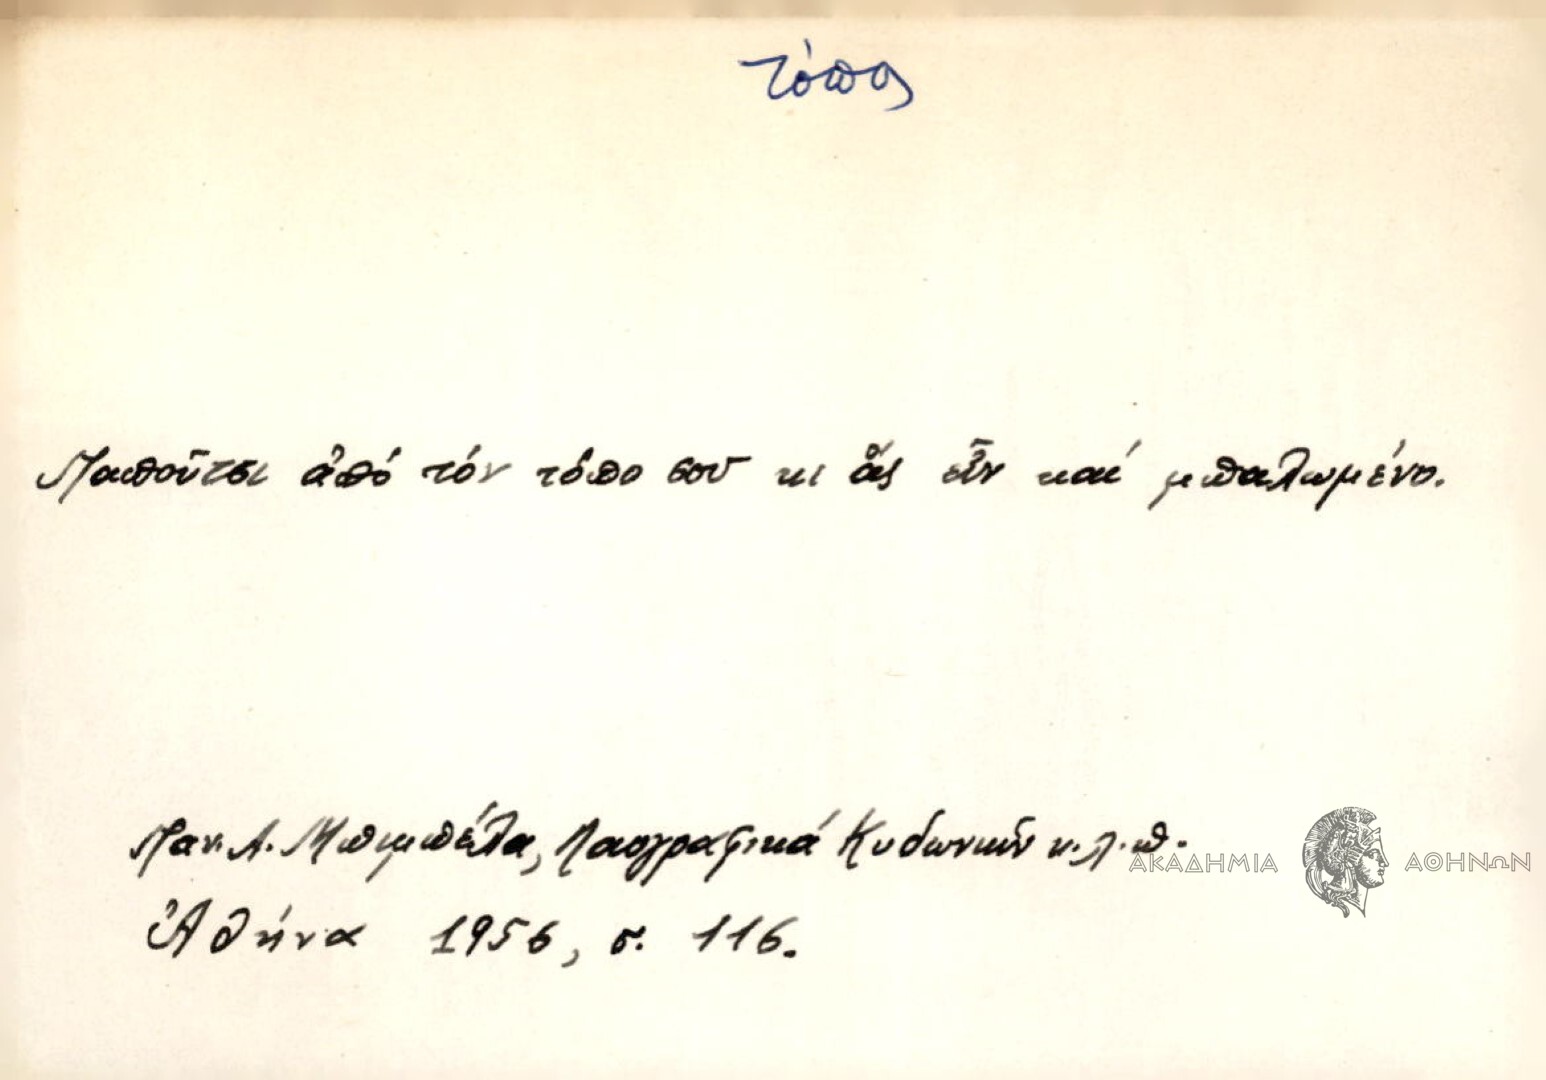 τόπος
Παπούτσι ἀπό τόν τόπο σου κι ἄς εἶν καί μπαλωμένο.
Παν. Λ. Μπιμπέλα, Λαογραφικά Κυδωνιῶν κ.λ.π.
ΑΚΑΔΗΜΙΑ ΑΘΗΝΩΝ
Ἀθήνα 1956, σ. 116.